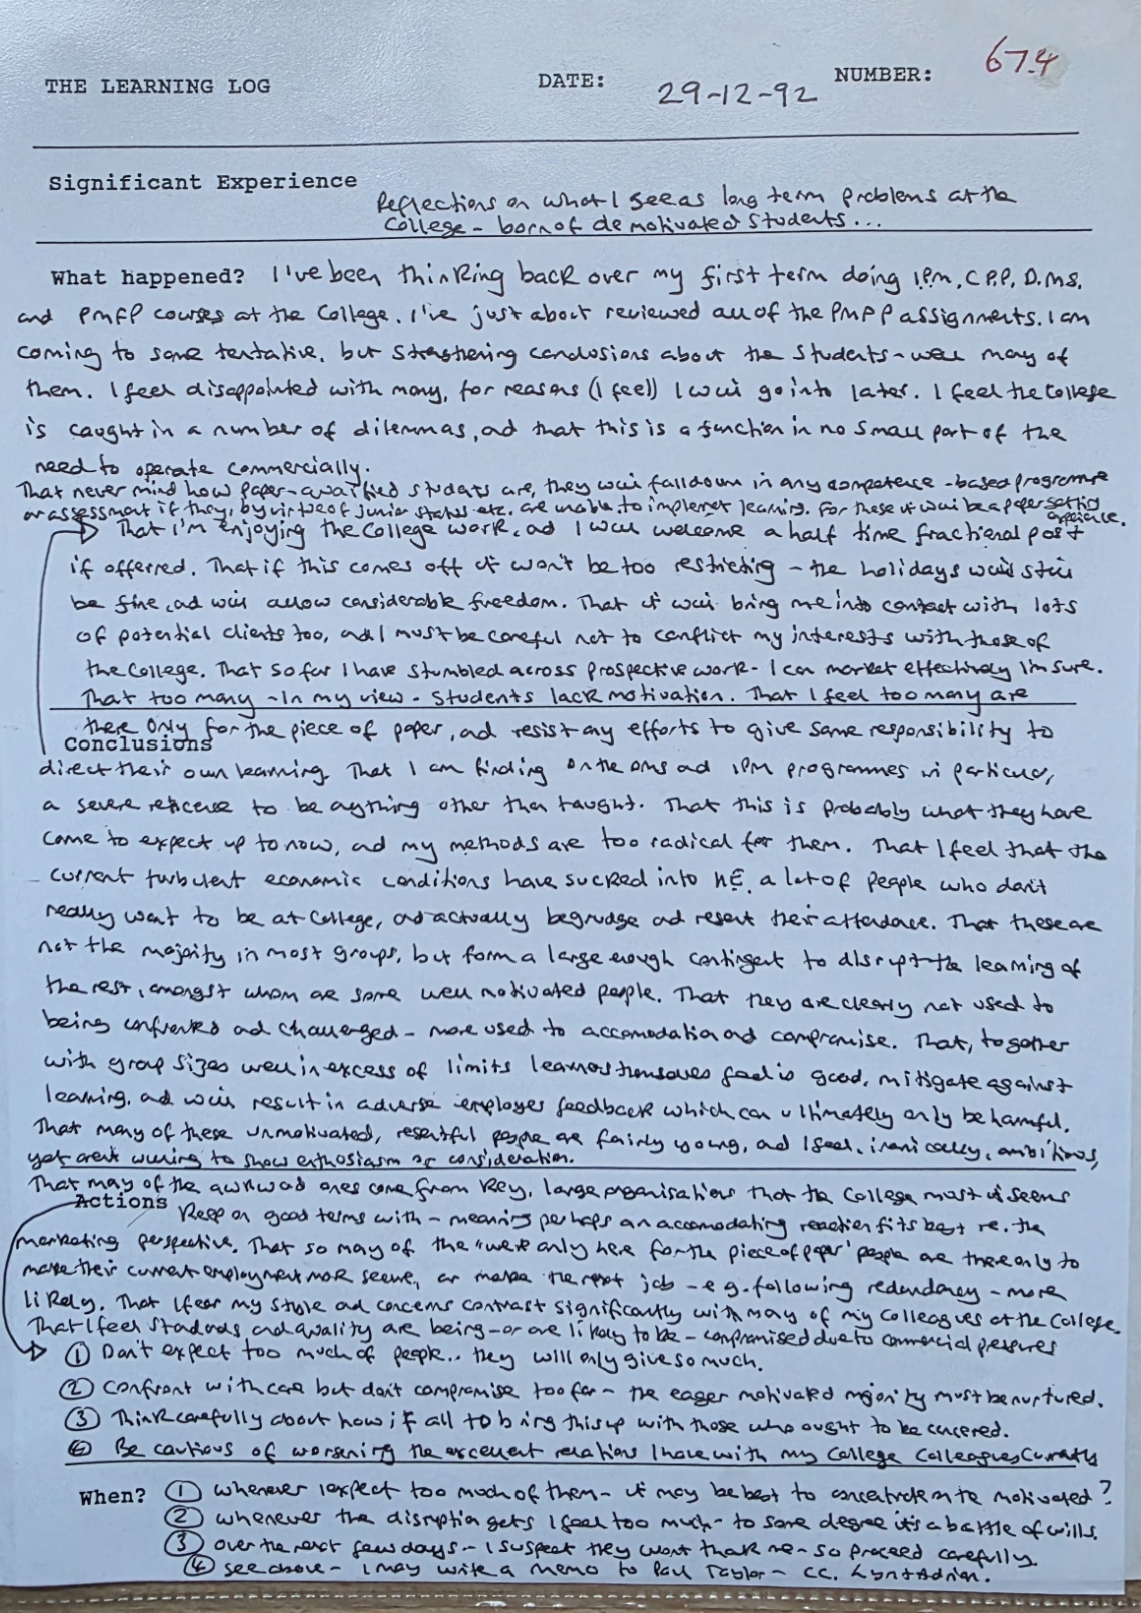 THE LEARNING LOG DATE: 29-12-92 NUMBER: 67.4
Significant Experience Reflections on what I see as long term problems at the
College - born of demotivated students...
What happened? I've been thinking back over my first term doing I.P.M, C.P.P, D.M.S,
and PMFP courses at the College. I've just about reviewed all of the PMPP assignments. I am
coming to some tentative, but strengthening conclusions about the students - well many of
them. I feel disappointed with many, for reasons (I feel) I will go into later. I feel the College
is caught in a number of dilemmas, and that this is a function in no small part of the
need to operate commercially.
That never mind how paper-qualified students are, they will fall down in any competence-based programme
or assessment if they, by virtue of junior status etc. are unable to implement learning. For these it will be a paper-getting
experience.
That I'm enjoying the College work, and I will welcome a half time fractional post
if offerred. That if this comes off it won't be too restricting - the holidays will still
be fine, and will allow considerable freedom. That it will bring me into contact with lots
of potential clients too, and I must be careful not to conflict my interests with those of
the College. That so far I have stumbled across prospective work - I can market effectively I'm sure.
That too many - in my view - students lack motivation. That I feel too many are
there only for the piece of paper, and resist my efforts to give some responsibility to
Conclusions
direct their own learning. That I am finding on the DMS and IPM programmes in particular,
a severe reticence to be anything other than taught. That this is probably what they have
come to expect up to now, and my methods are too radical for them. That I feel that the
current turbulent economic conditions have sucked into HE, a lot of people who don't
really want to be at College, and actually begrudge and resent their attendance. That these are
not the majority in most groups, but form a large enough contingent to disrupt the learning of
the rest, amongst whom are some well motivated people. That they are clearly not used to
being confronted and challenged - more used to accomodation and compromise. That, together
with group sizes well in excess of limits learners themselves feel is good, mitigate against
learning, and will result in adverse employer feedback which can ultimately only be harmful.
That many of these unmotivated, resentful people are fairly young, and I feel, ironically, ambitious,
yet aren't willing to show enthusiasm or consideration.
That many of the awkward ones come from key, large organisations that the College must it seems
Actions keep on good terms with - meaning perhaps an accomodating reaction fits best re. the
marketing perspective. That so many of the "we're only here for the piece of paper' people are there only to
make their current employment more secure, or make the next job - e.g. following redundancy - more
likely. That I fear my style and concerns contrast significantly with many of my colleagues at the College.
That I feel standards and quality are being - or are likely to be - compromised due to commercial pressures
① Don't expect too much of people.. they will only give so much.
② Confront with care but don't compromise too far - the eager motivated majority must be nurtured.
③ Think carefully about how if all to bring this up with those who ought to be concerned.
④ Be cautious of worsening the excellent relations I have with my College Colleagues currently
When? ① whenever I expect too much of them - it may be best to concentrate on the motivated?
② whenever the disruption gets I feel too much - to some degree it's a battle of wills.
③ over the next few days - I suspect they won't thank me - so proceed carefully.
④ see above - I may write a memo to Paul Taylor - cc. Lyn + Adrian.